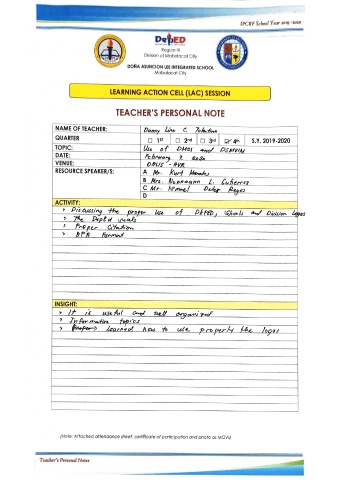 IPCRF School Year 2019 -2020
DepED
DEPARTMENT OF EDUCATION
Region III
Division of Mabalacat City
DOÑA ASUNCION LEE INTEGRATED SCHOOL
Mabalacat City
LEARNING ACTION CELL (LAC) SESSION
TEACHER'S PERSONAL NOTE
NAME OF TEACHER: Danny Lino C.
QUARTER 1st 2nd 3rd 4th S.Y. 2019-2020
TOPIC: Use of and
DATE: February 7, 2020
VENUE: DALIS - AVR
RESOURCE SPEAKER/S: A Mr. Kurt
B Mrs. L. Gutierrez
C Mr. Delos Reyes
D
ACTIVITY:
> Discussing the proper Use of DepED, Schools and Division Logos
> The DepEd seals
> Proper Citation
> APA Format
INSIGHT:
> It is useful and well organized
> Informative topics
> Learned how to use property the logos
(Note: Attached attendance sheet, certificate of participation and photo as MOVs)
Teacher's Personal Notes